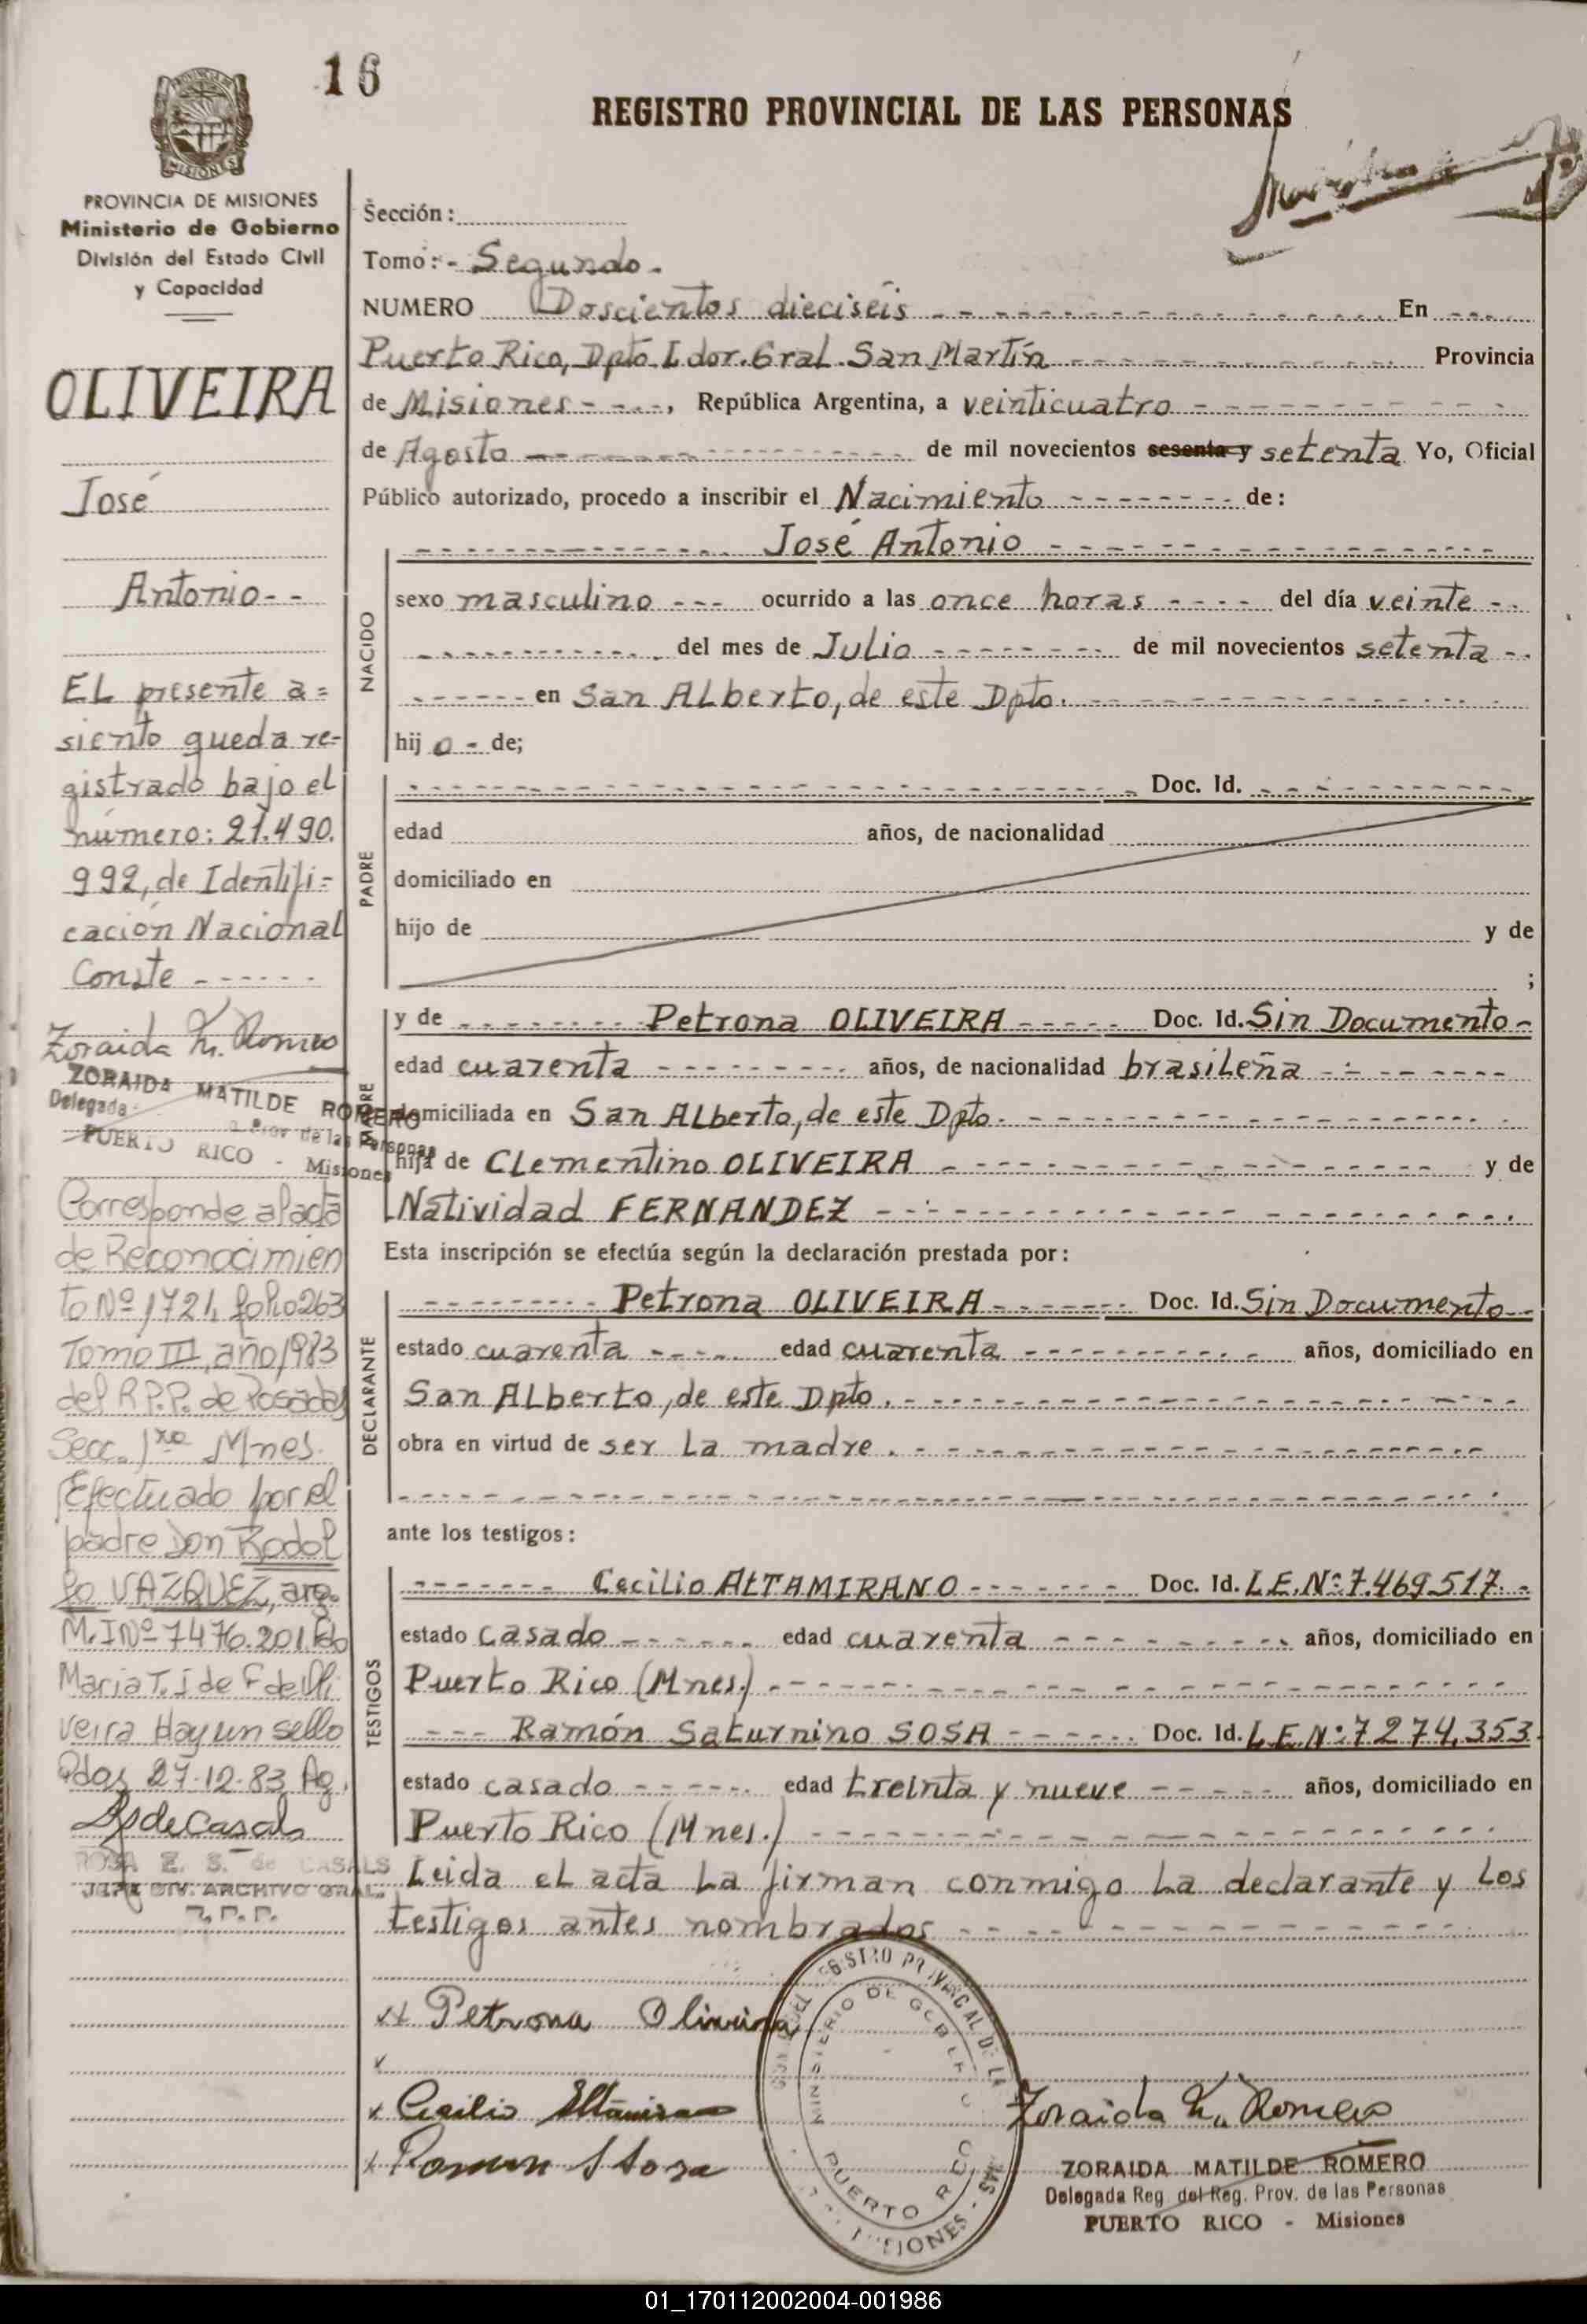 16
REGISTRO PROVINCIAL DE LAS PERSONAS
MISIONES
PROVINCIA DE MISIONES
Ministerio de Gobierno
División del Estado Civil
y Capacidad
OLIVEIRA
José
Antonio - -
EL presente a=
siento queda re-
gistrado bajo el
número: 21.490.
992, de Identifi=
cación Nacional
Conste - - - - - -
Zoraida M. Romero
ZORAIDA MATILDE ROMERO
Delegada Prov de las Personas
PUERTO RICO - Misiones
Corresponde al acta
de Reconocimien
to Nº 1721, folio 263
Tomo III, año 1983
del R.P.P. de Posadas
Secc. 1ra Mnes.
Efectuado por el
padre Don Rodol
fo VAZQUEZ, arg.
M.I Nº 7476.201. Fdo
Maria T. I de F de Oli
veira Hay un sello
Pdas 27-12-83 Ag.
de Casals
ROSA E. S. de CASALS
JEFE DIV. ARCHIVO GRAL.
R.P.P.
Sección:
Tomo: - Segundo -
NUMERO Doscientos dieciséis - - - En - - -
Puerto Rico, Dpto. Ldor. Gral. San Martín - - - Provincia
de Misiones - - - -, República Argentina, a veinticuatro - - -
de Agosto - - - de mil novecientos sesenta y setenta Yo, Oficial
Público autorizado, procedo a inscribir el Nacimiento - - - de:
NACIDO
- - - José Antonio - - -
sexo masculino - - - ocurrido a las once horas - - - - del día veinte - -
- - - del mes de Julio - - - de mil novecientos setenta - -
- - - en San ALberto, de este Dpto. - - -
hij o - de;
PADRE
- - - Doc. Id. - - -
edad años, de nacionalidad
domiciliado en
hijo de y de
;
MADRE
y de - - - Petrona OLIVEIRA - - - Doc. Id. Sin Documento -
edad cuarenta - - - años, de nacionalidad brasileña - - -
domiciliada en San ALberto, de este Dpto. - - -
hija de CLementino OLIVEIRA - - - y de
Natividad FERNANDEZ - - -
Esta inscripción se efectúa según la declaración prestada por:
DECLARANTE
- - - Petrona OLIVEIRA - - - Doc. Id. Sin Documento - -
estado cuarenta - - - edad cuarenta - - - años, domiciliado en
San ALberto, de este Dpto. - - -
obra en virtud de ser La madre. - - -
- - -
ante los testigos:
TESTIGOS
- - - Cecilio ALTAMIRANO - - - Doc. Id. L.E. Nº: 7.469.517. -
estado casado - - - edad cuarenta - - - años, domiciliado en
Puerto Rico (Mnes.) - - -
- - - Ramón Saturnino SOSA - - - Doc. Id. L.E. Nº: 7.274.353.
estado casado - - - edad treinta y nueve - - - años, domiciliado en
Puerto Rico (Mnes.) - - -
Leida el acta La firman conmigo La declarante y Los
testigos antes nombrados - - -
x Petrona Oliveira
x Cecilio Altamirano
x Ramon S Sosa
REGISTRO PROVINCIAL DE LAS
MINISTERIO DE GOBIERNO
PUERTO RICO
MISIONES
Zoraida M. Romero
ZORAIDA MATILDE ROMERO
Delegada Reg. del Reg. Prov. de las Personas
PUERTO RICO - Misiones
01_170112002004-001986